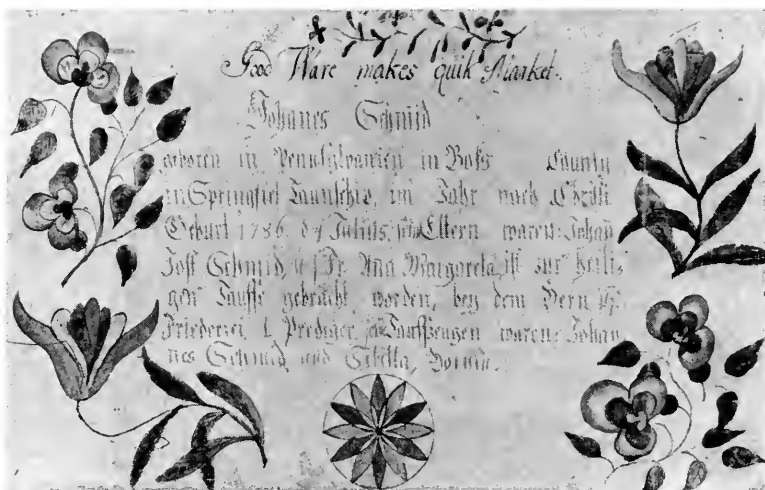 Good Ware makes quik Market.
Johanes Schmid
geboren in Pennsylvanien in Boks County
in Springfiel Taunschip, im Jahr nach Christi
Geburt 1786. d Julius, Eltern waren: Johan
Jost Schmid, Fr. Ana Margareta, ist zur Heili-
gen Tauffe gebracht worden, bey dem Hern
Friederici L Prediger, Tauffzeugen waren: Johan
nes Schmid und Sibilla,